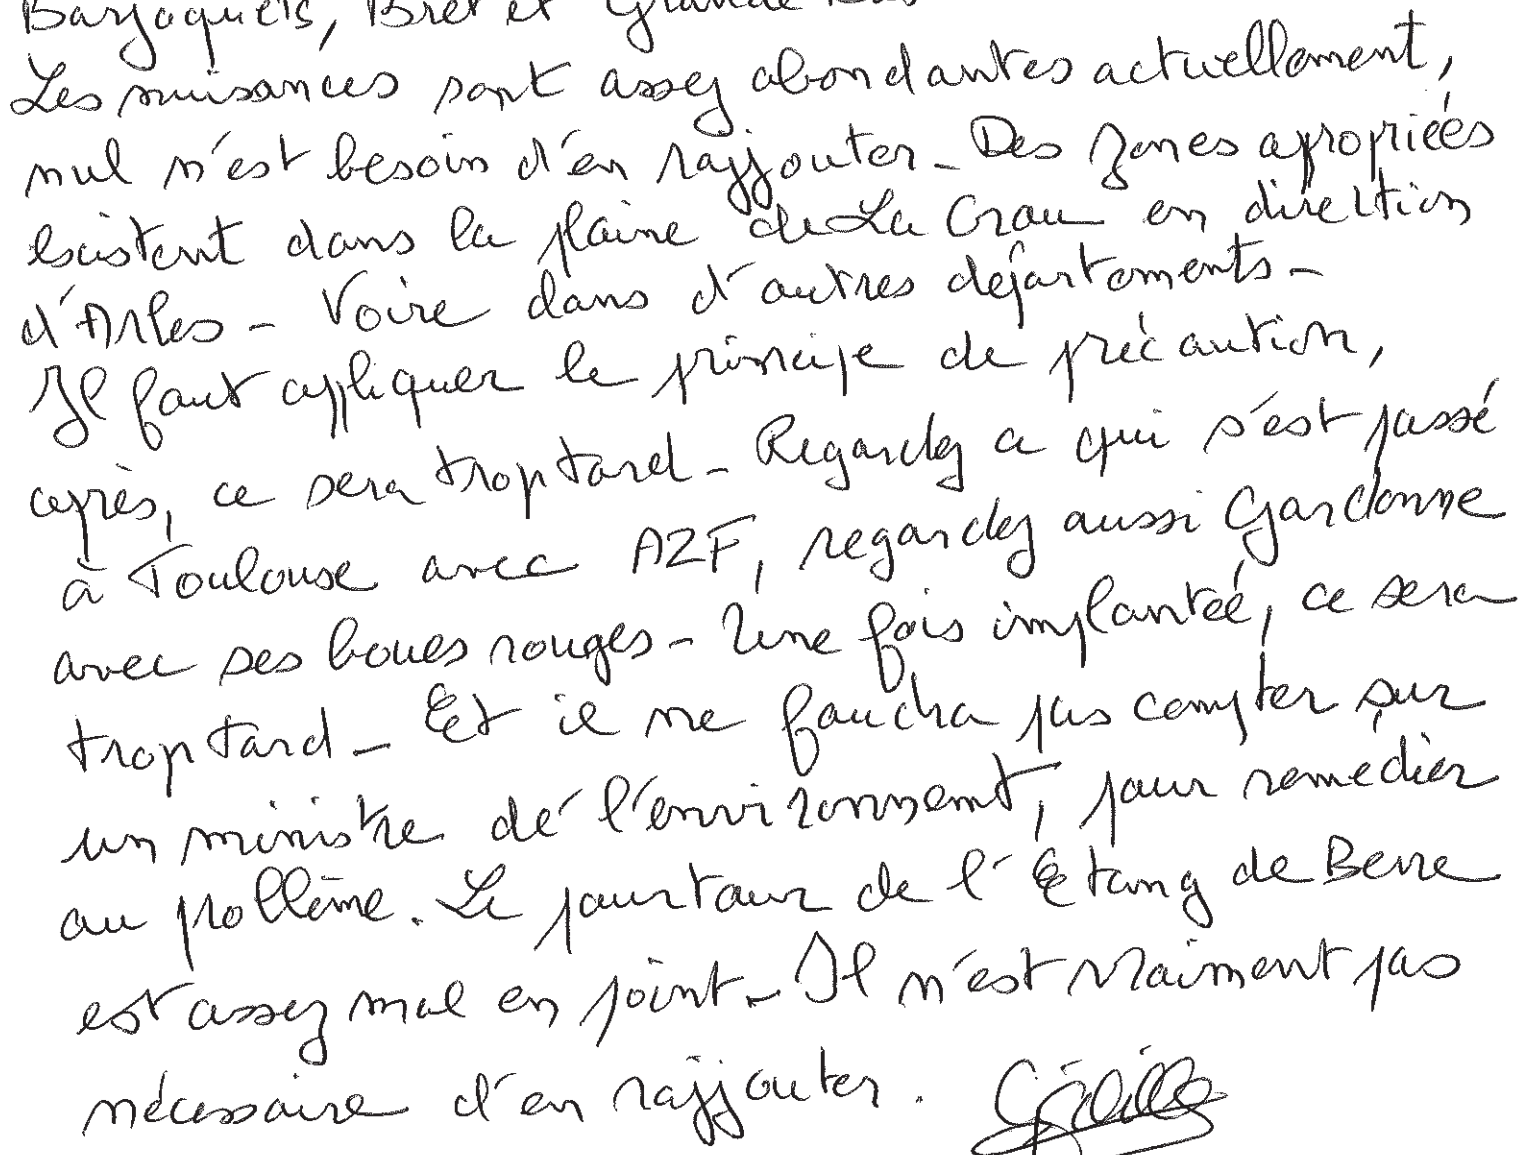 Barjaquets, Bret et Grande Bas
Les nuisances sont assez abondantes actuellement,
nul n'est besoin d'en rajjouter - Des zones apropriées
existent dans la plaine de La Crau en direction
d'Arles - Voire dans d'autres départements -
Il faut appliquer le principe de précaution,
après, ce sera trop tard - Regardez ce qui s'est passé
à Toulouse avec AZF, regardez aussi Gardanne
avec ses boues rouges - Une fois implantée, ce sera
trop tard - Et il ne faudra pas compter sur
un ministre de l'environnemt, pour remedier
au problème. Le pourtour de l'Etang de Berre
est assez mal en point - Il n'est vraiment pas
nécessaire d'en rajjouter.